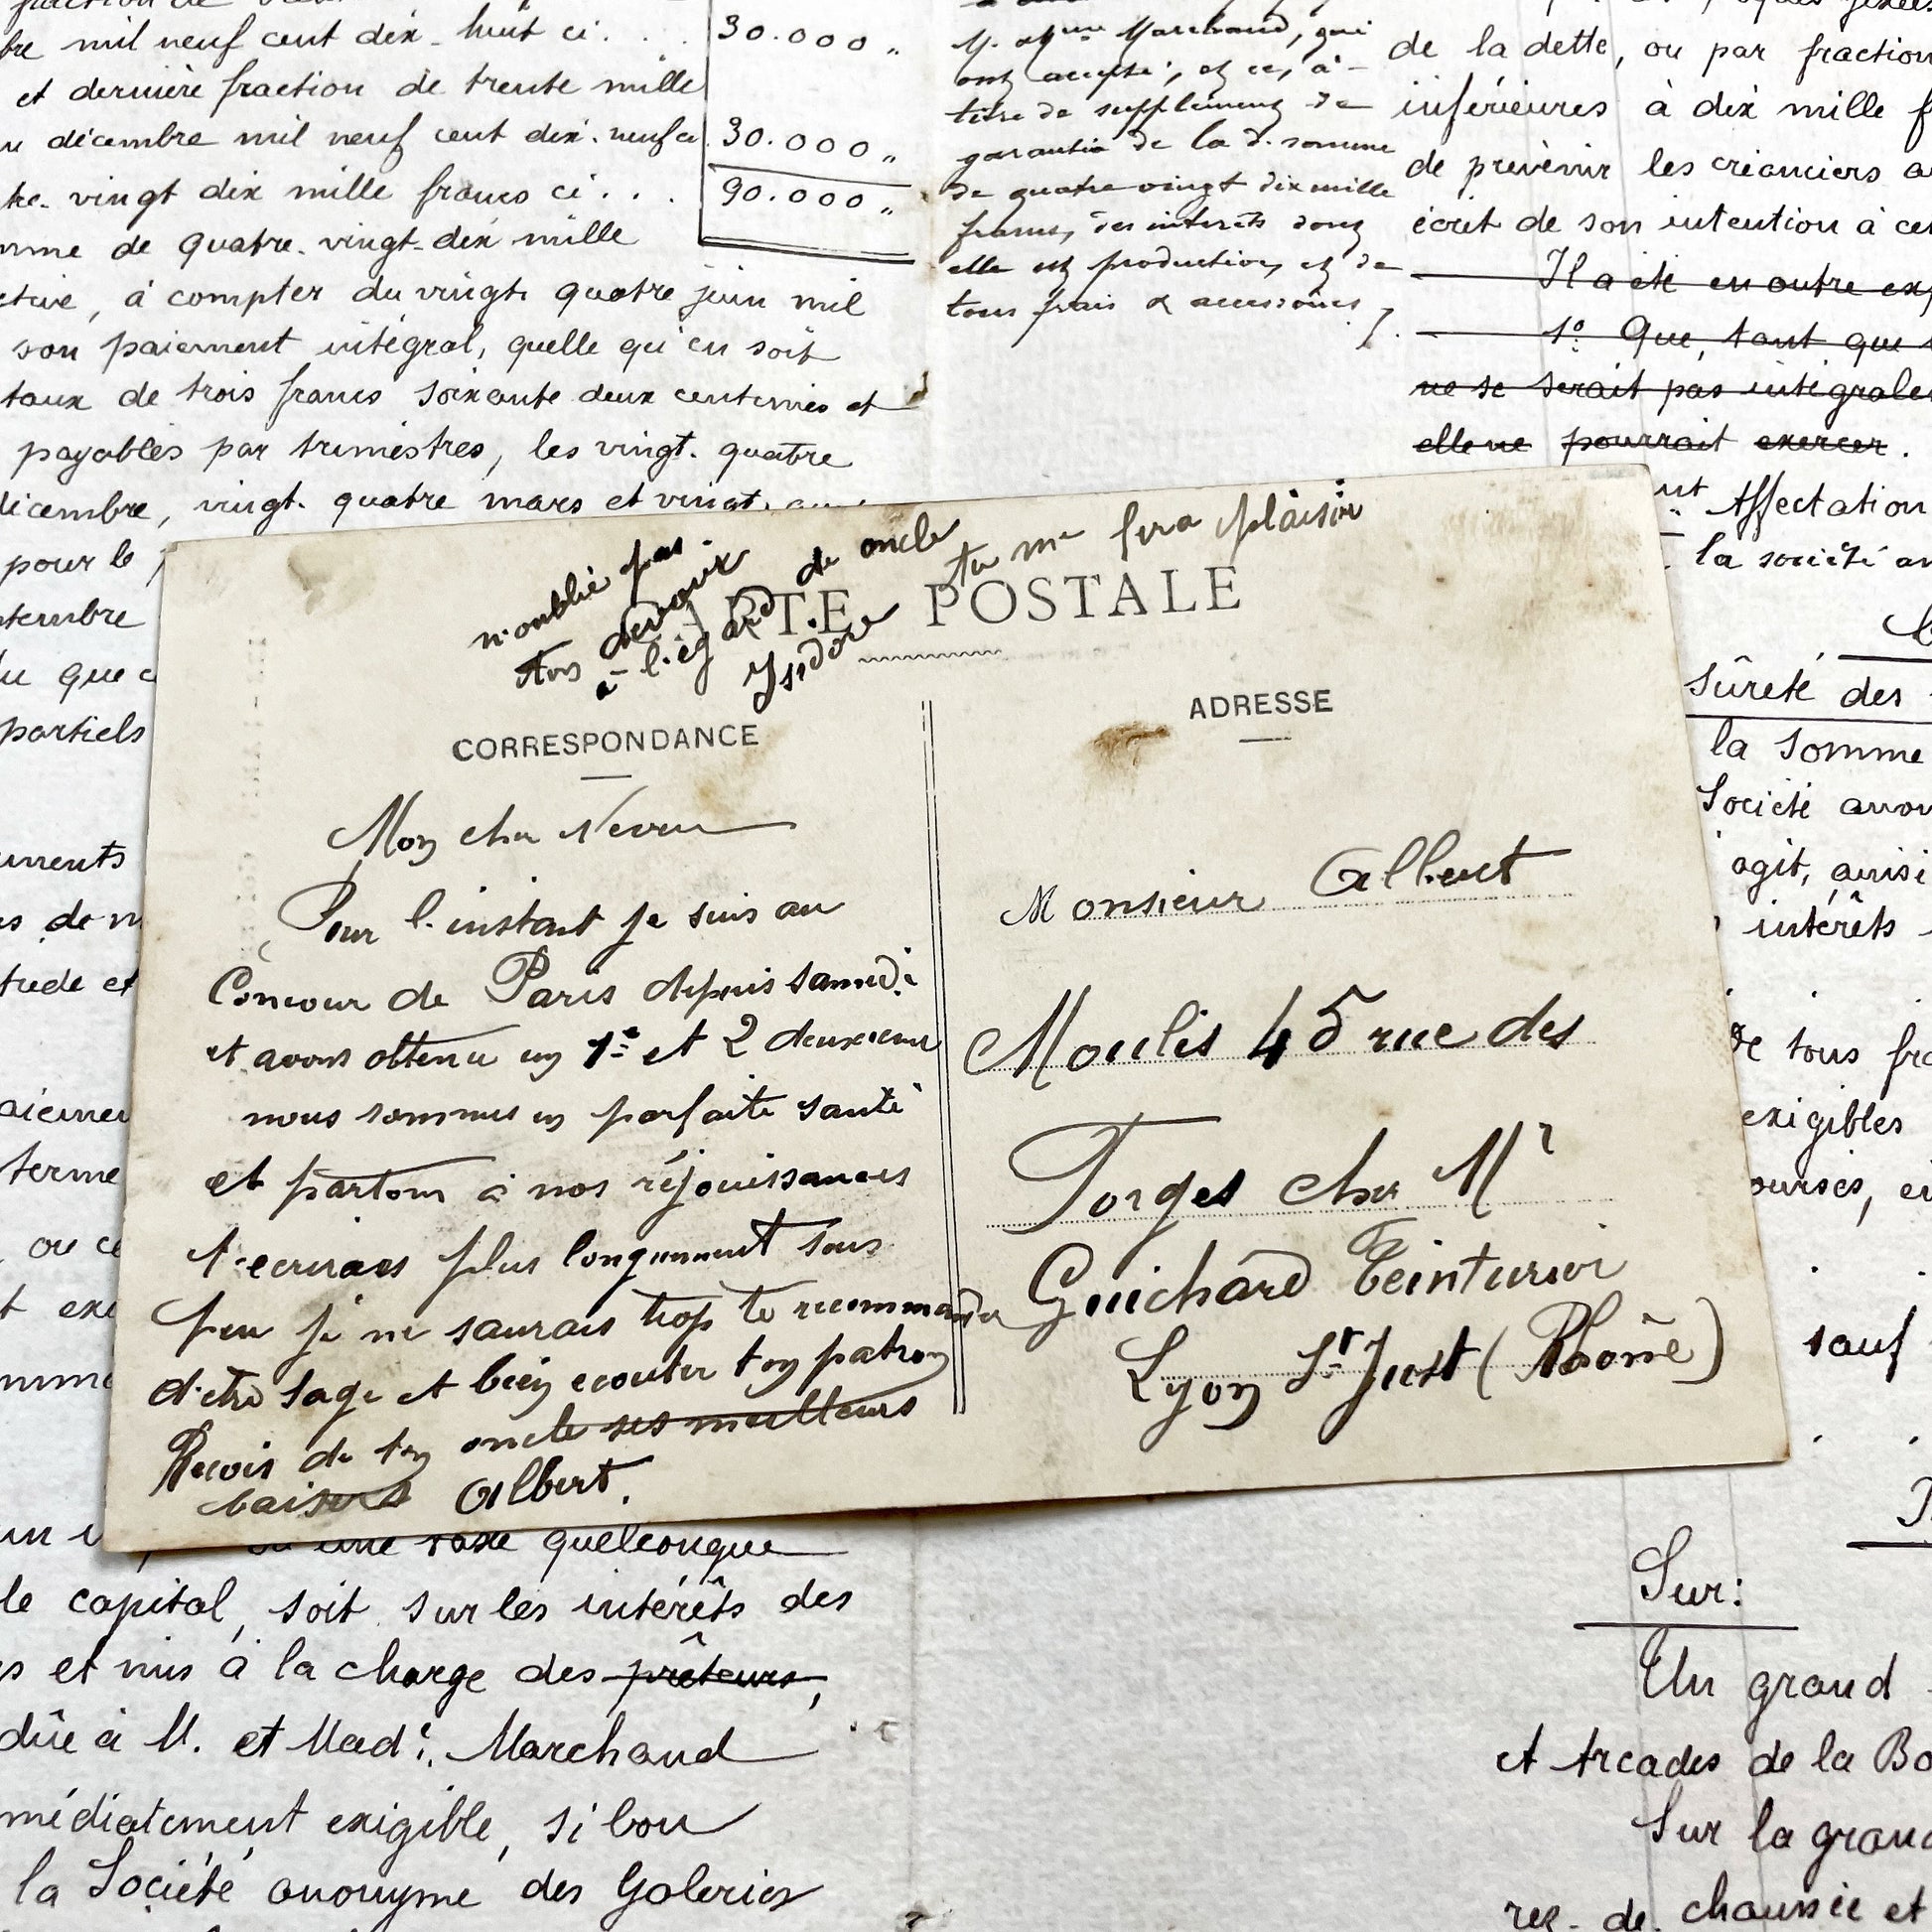 bre mil neuf cent dix-huit ci . . . 30.000 "
et dernière fraction de trente mille
décembre mil neuf cent dix-neuf ci 30.000 "
vingt dix mille francs ci . . . 90.000 "
mme de quatre-vingt-dix mille
, à compter du vingt quatre juin mil
son paiement intégral, quelle qu'en soit
taux de trois francs soixante deux centimes et
payables par trimestres, les vingt-quatre
décembre, vingt-quatre mars et vingt
pour le
tembre
que
partiels
uments
de
tude et
terme
ou ce
M. et Mme Marchand, qui
ont accepté, et ce, à
titre de supplément de
garantie de la d. somme
de quatre vingt dix mille
francs, des intérêts dont
elle est production, et de
tous frais & accessoires /.
de la dette, ou par fraction
inférieures à dix mille f
de prévenir les créanciers
écrit de son intention à cet
Il a été en outre exp
1° Que, tant que
ne se serait pas intégrale
elle ne pourrait exercer .
Affectation
la société an
sûreté des
la somme
Société anon
agit, ainsi
intérêts
de tous fra
exigibles
ourses, en
sauf
n'oublie pas
tes devoirs
à l'égard de oncle
Isidore
tu me fera plaisir
CARTE POSTALE
CORRESPONDANCE
Mon cher Neveu
Pour l'instant je suis au
Concour de Paris depuis samedi
et avons obtenu un 1er et 2 deuxieme
nous sommes en parfaite santé
et partons à nos réjouissances
t'ecrirais plus longuement sous
peu je ne saurais trop te recommander
d'etre sage et bien ecouter ton patron
Recois de ton oncle ses meilleurs
baisers Albert.
ADRESSE
Monsieur Albert
Moulis 45 rue des
Forges chez Mr
Guichard Teinturier
Lyon St Just (Rhône)
une taxe quelconque
le capital, soit sur les intérêts des
s et mis à la charge des prêteurs,
dûe à M. et Made. Marchand
médiatement exigible, si bon
la Société anonyme des Galeries
Sur:
Un grand
et Arcades de la Bo
Sur la grand
rez-de-chaussée et